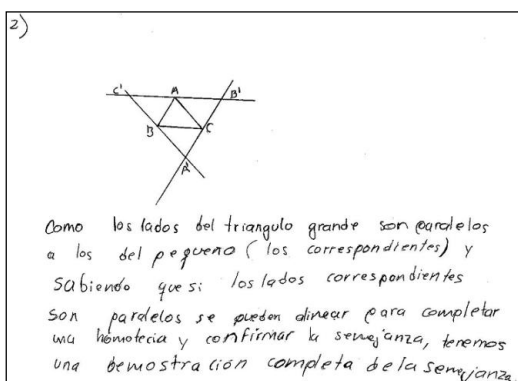 2)
C' A B'
B C
A'
Como los lados del triangulo grande son paralelos
a los del pequeño (los correspondientes) y
sabiendo que si los lados correspondientes
son paralelos se pueden alinear para completar
una homotecia y confirmar la semejanza, tenemos
una demostración completa de la semejanza.